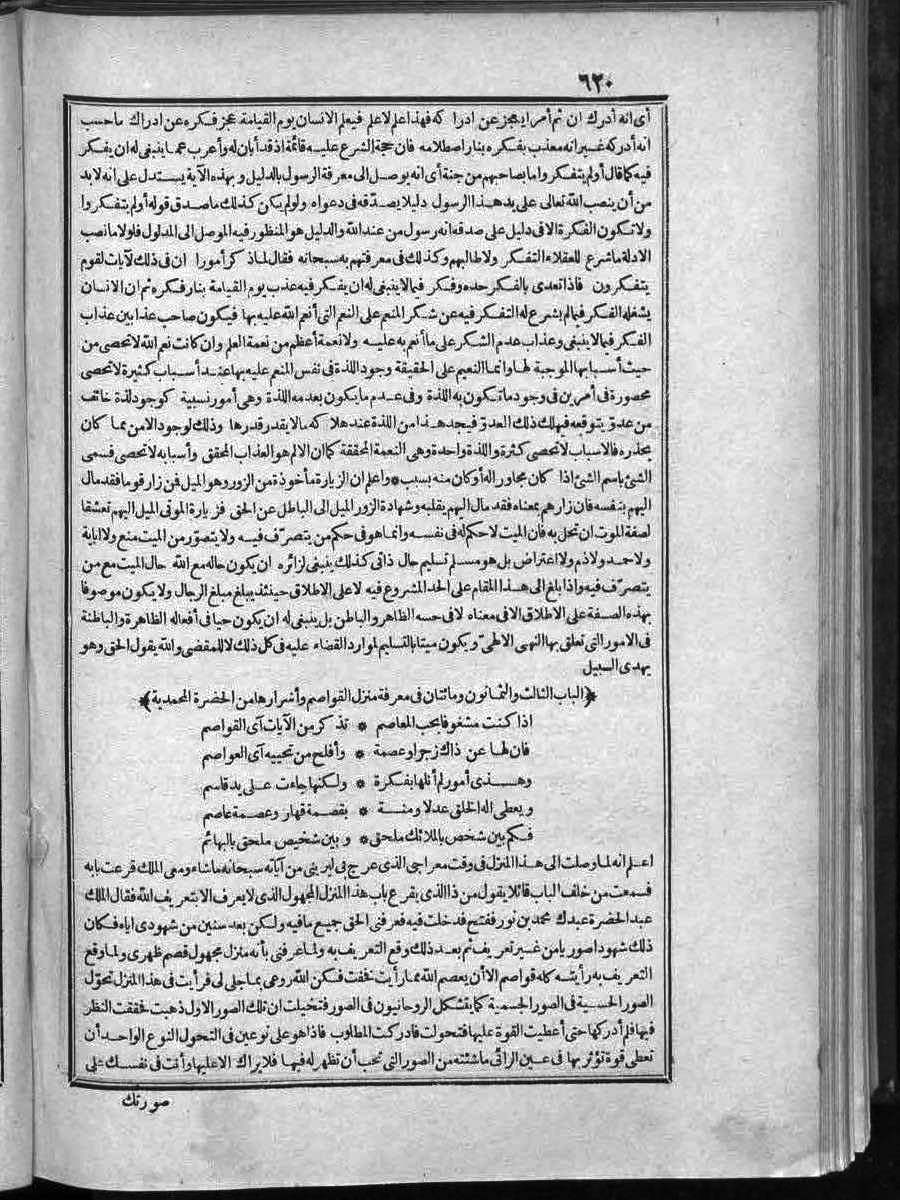 ٦٢٠
أى انه أدرك ان ثم أمرا يعجز عن ادراكه فهذا علم لا علم فيعلم الانسان يوم القيامة عجز فكره عن ادراك ما حسب
انه أدركه غير انه معذب بفكره بنار اصطلامه فان حجة الشرع عليه قائمة اذ قد أبان له وأعرب عما ينبغى له ان يفكر
فيه كما قال أولم يتفكروا ما بصاحبهم من جنة أى انه يوصل الى معرفة الرسول بالدليل وبهذه الآية يستدل على انه لا بد
من أن ينصب الله تعالى على يد هذا الرسول دليلا يصدّقه فى دعواه ولو لم يكن كذلك ما صدق قوله أولم يتفكروا
ولا تكون الفكرة الا فى دليل على صدقه انه رسول من عند الله والدليل هو المنظور فيه الموصل الى المدلول فلولا ما نصب
الادلة ما شرع للعقلاء التفكر ولا طالبهم وكذلك فى معرفتهم به سبحانه فقال لما ذكر أمورا ان فى ذلك لآيات لقوم
يتفكرون فاذا تعدى بالفكر حده وفكر فيما لا ينبغى له ان يفكر فيه عذب يوم القيامة بنار فكره ثم ان الانسان
يشغله الفكر فيما لم يشرع له التفكر فيه عن شكر المنعم على النعم التى أنعم الله عليه بها فيكون صاحب عذابين عذاب
الفكر فيما لا ينبغى وعذاب عدم الشكر على ما أنعم به عليه ولا نعمة أعظم من نعمة العلم وان كانت نعم الله لا تحصى من
حيث أسبابها الموجبة لها وانما النعيم على الحقيقة وجود اللذة فى نفس المنعم عليه بها عند أسباب كثيرة لا تحصى
محصورة فى أمرين فى وجود ما تكون به اللذة وفى عدم ما يكون بعدمه اللذة وهى أمور نسبية كوجود لذة خائف
من عدوّ يتوقعه فهلك ذلك العدوّ فيجد هذا من اللذة عند هلاكه ما لا يقدر قدرها وذلك لوجود الامن مما كان
يحذره فالاسباب لا تحصى كثرة واللذة واحدة وهى النعمة المحققة كما ان الالم هو العذاب المحقق وأسبابه لا تحصى فسمى
الشئ باسم الشئ اذا كان مجاوراله أو كان منه بسبب * واعلم ان الزيارة مأخوذة من الزور وهو الميل فمن زار قوما فقد مال
اليهم بنفسه فان زارهم بمعناه فقد مال اليهم بقلبه وشهادة الزور الميل الى الباطل عن الحق فزيارة الموتى الميل اليهم تعشقا
لصفة الموت ان تحل به فان الميت لا حكم له فى نفسه وانما هو فى حكم من يتصرّف فيه ولا يتصوّر من الميت منع ولا اباية
ولا حمد ولا ذم ولا اعتراض بل هو مسلم تسليم حال ذاتى كذلك ينبغى لزائره ان يكون حاله مع الله حال الميت مع من
يتصرّف فيه واذا بلغ الى هذا المقام على الحد المشروع فيه لا على الاطلاق حينئذ يبلغ مبلغ الرجال ولا يكون موصوفا
بهذه الصفة على الاطلاق الا فى معناه لا فى حسه الظاهر والباطن بل ينبغى له ان يكون حيا فى أفعاله الظاهرة والباطنة
فى الامور التى تعلق بها النهى الالهىّ ويكون ميتا بالتسليم لموارد القضاء عليه فى كل ذلك لا للمقضى والله يقول الحق وهو
يهدى السبيل
﴿الباب الثالث والثمانون ومائتان فى معرفة منزل القواصم وأسرارها من الحضرة المحمدية﴾
اذا كنت مشغوفا بحب المعاصم * تذكر من الآيات آى القواصم
فان لها عن ذاك زجرا وعصمة * وأفلح من تحييه آى العواصم
وهذى أمور لم أنلها بفكرة * ولكنها جاءت على يد قاسم
ويعطى اله الخلق عدلا ومنة * بقصمة قهار وعصمة عاصم
فكم بين شخص بالملائك ملحق * وبين شخيص ملحق بالبهائم
اعلم انه لما وصلت الى هذا المنزل فى وقت معراجى الذى عرج بى ليرينى من آياته سبحانه ما شاء ومعى الملك قرعت بابه
فسمعت من خلف الباب قائلا يقول من ذا الذى يقرع باب هذا المنزل المجهول الذى لا يعرف الا بتعريف الله فقال الملك
عبد الحضرة عبدك محمد بن نور ففتح فدخلت فيه فعرفنى الحق جميع ما فيه ولكن بعد سنين من شهودى اياه فكان
ذلك شهودا صوريا من غير تعريف ثم بعد ذلك وقع التعريف به ولما عرفنى بأنه منزل مجهول قصم ظهرى ولما وقع
التعريف به رأيته كله قواصم الا أن يعصم الله مما رأيت فخفت فسكن الله روعى بما جلى لى فرأيت فى هذا المنزل تحوّل
الصور الحسية فى الصور الجسمية كما يتشكل الروحانيون فى الصور فتخيلت ان تلك الصور الاول ذهبت فحققت النظر
فيها فلم أدركها حتى أعطيت القوة عليها فتحولت فادركت المطلوب فاذا هو على نوعين فى التحول النوع الواحد أن
تعطى قوة تؤثر بها فى عين الرائى ما شئته من الصور التى تحب أن تظهر له فيها فلا يراك الا عليها وأنت فى نفسك على
صورتك